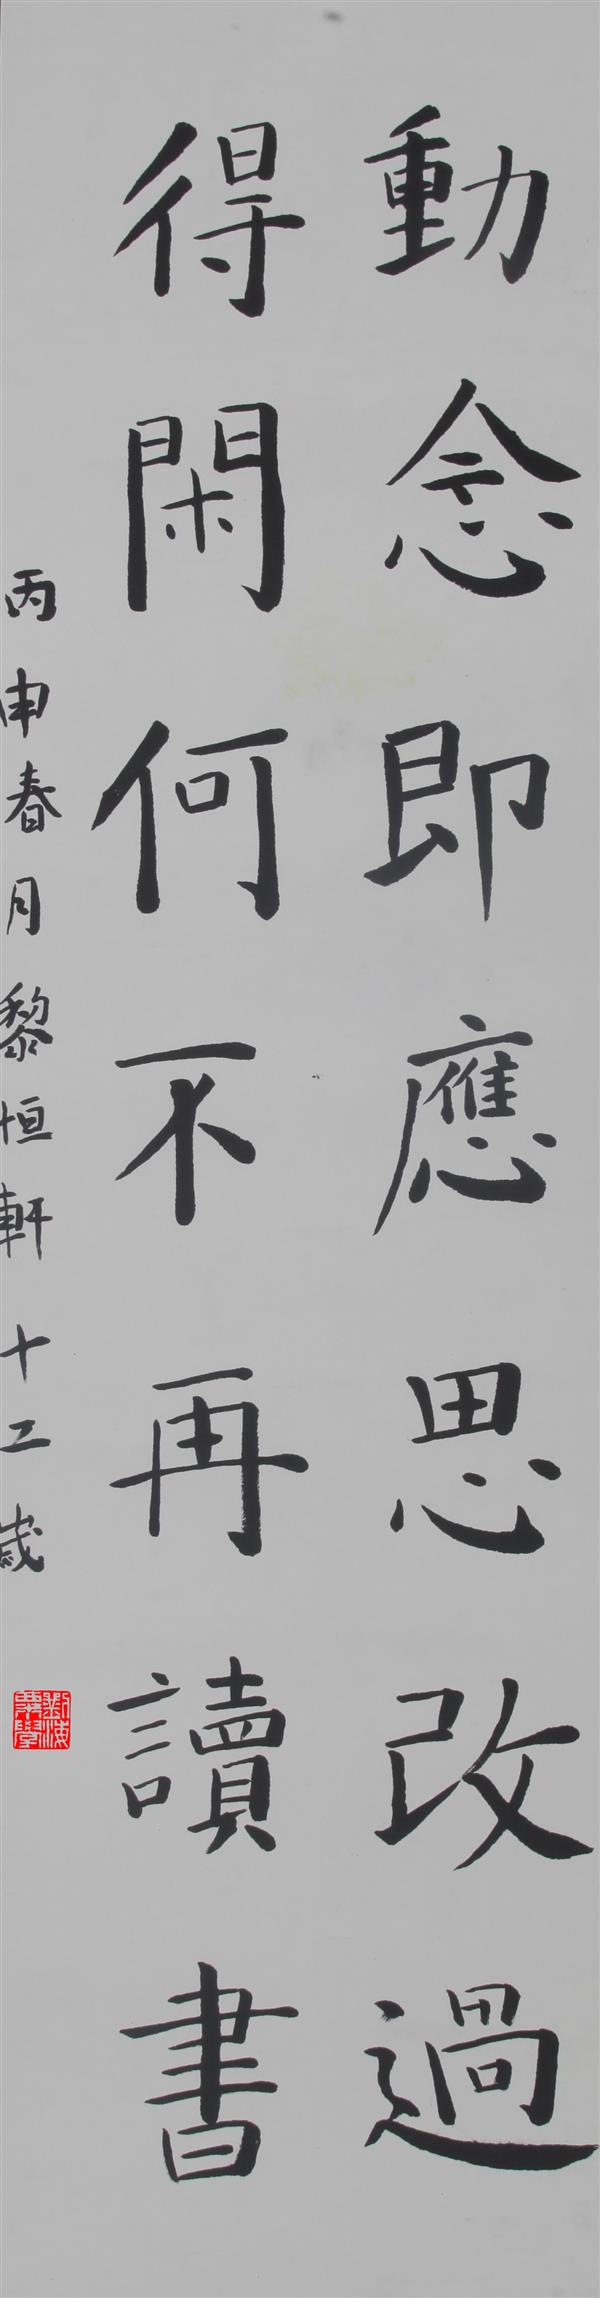 動念即應思改過
得閑何不再讀書
丙申春月黎恒軒十二歲